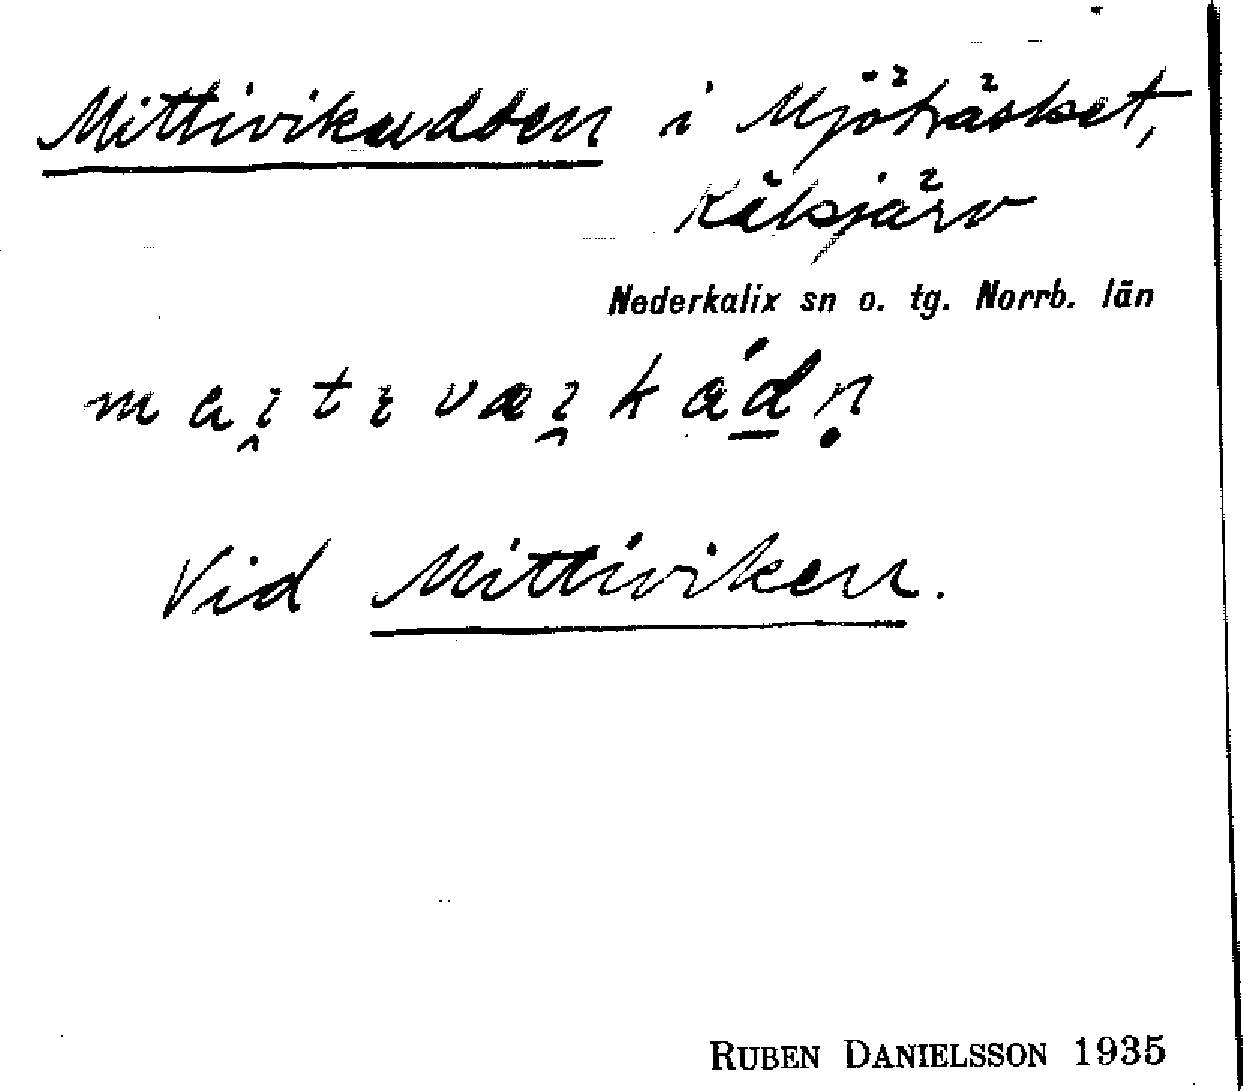 Mittivikudden i Mjöträsket,
Kälsjärv
Nederkalix sn o. tg. Norrb. län
mai̯tɩvæi̯kád̲ṇ
Vid Mittiviken.
RUBEN DANIELSSON 1935